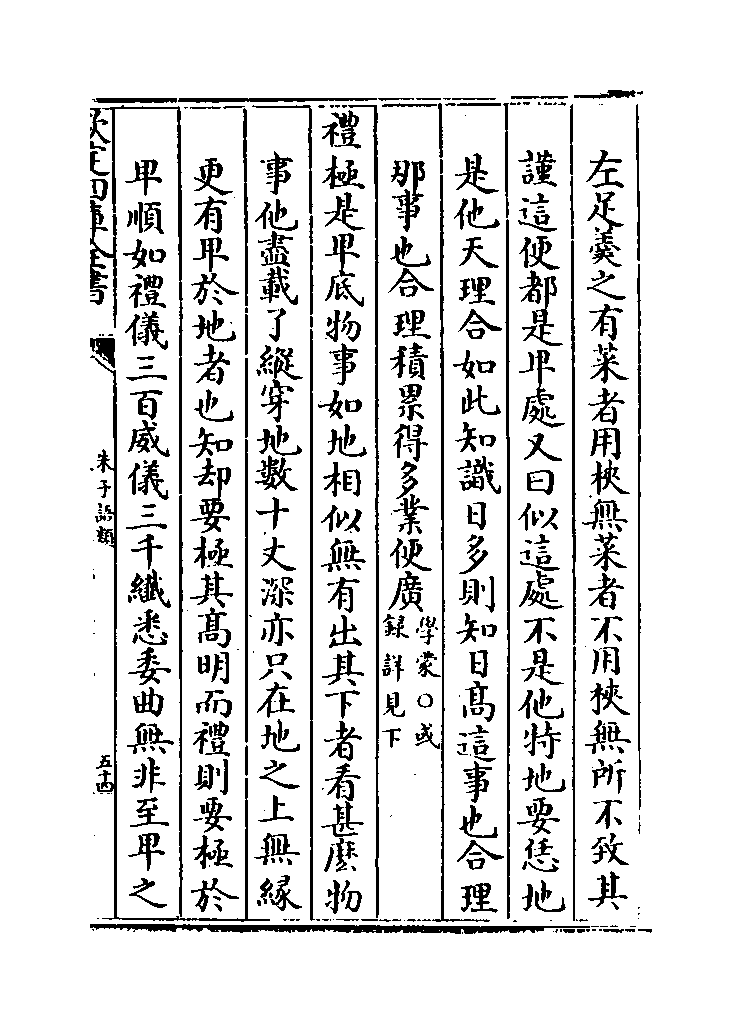 左足羹之有菜者用梜無菜者不用梜無所不致其
謹這便都是卑處又曰似這處不是他特地要恁地
是他天理合如此知識日多則知日高這事也合理
那事也合理積累得多業便廣學蒙○或
録詳見下
禮極是卑底物事如地相似無有出其下者看甚麽物
事他盡載了縱穿地數十丈深亦只在地之上無縁
更有卑於地者也知却要極其高明而禮則要極於
卑順如禮儀三百威儀三千纎悉委曲無非至卑之
欽定四庫全書
朱子語類
五十四